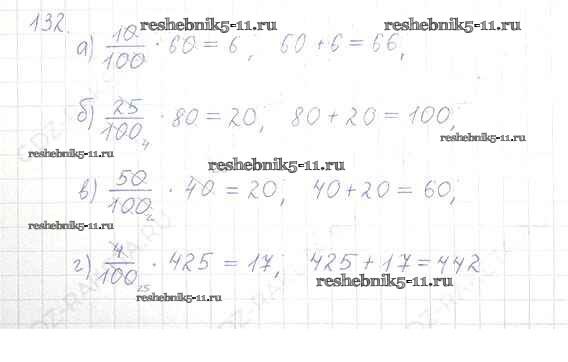 132.
reshebnik5-11.ru reshebnik5-11.ru
а) 10/100 · 60 = 6; 60 + 6 = 66,
б) 25/100 4 · 80 = 20; 80 + 20 = 100;
reshebnik5-11.ru
reshebnik5-11.ru
reshebnik5-11.ru
в) 50/100 2 · 40 = 20; 40 + 20 = 60;
reshebnik5-11.ru
г) 4/100 25 · 425 = 17; 425 + 17 = 442
reshebnik5-11.ru
reshebnik5-11.ru